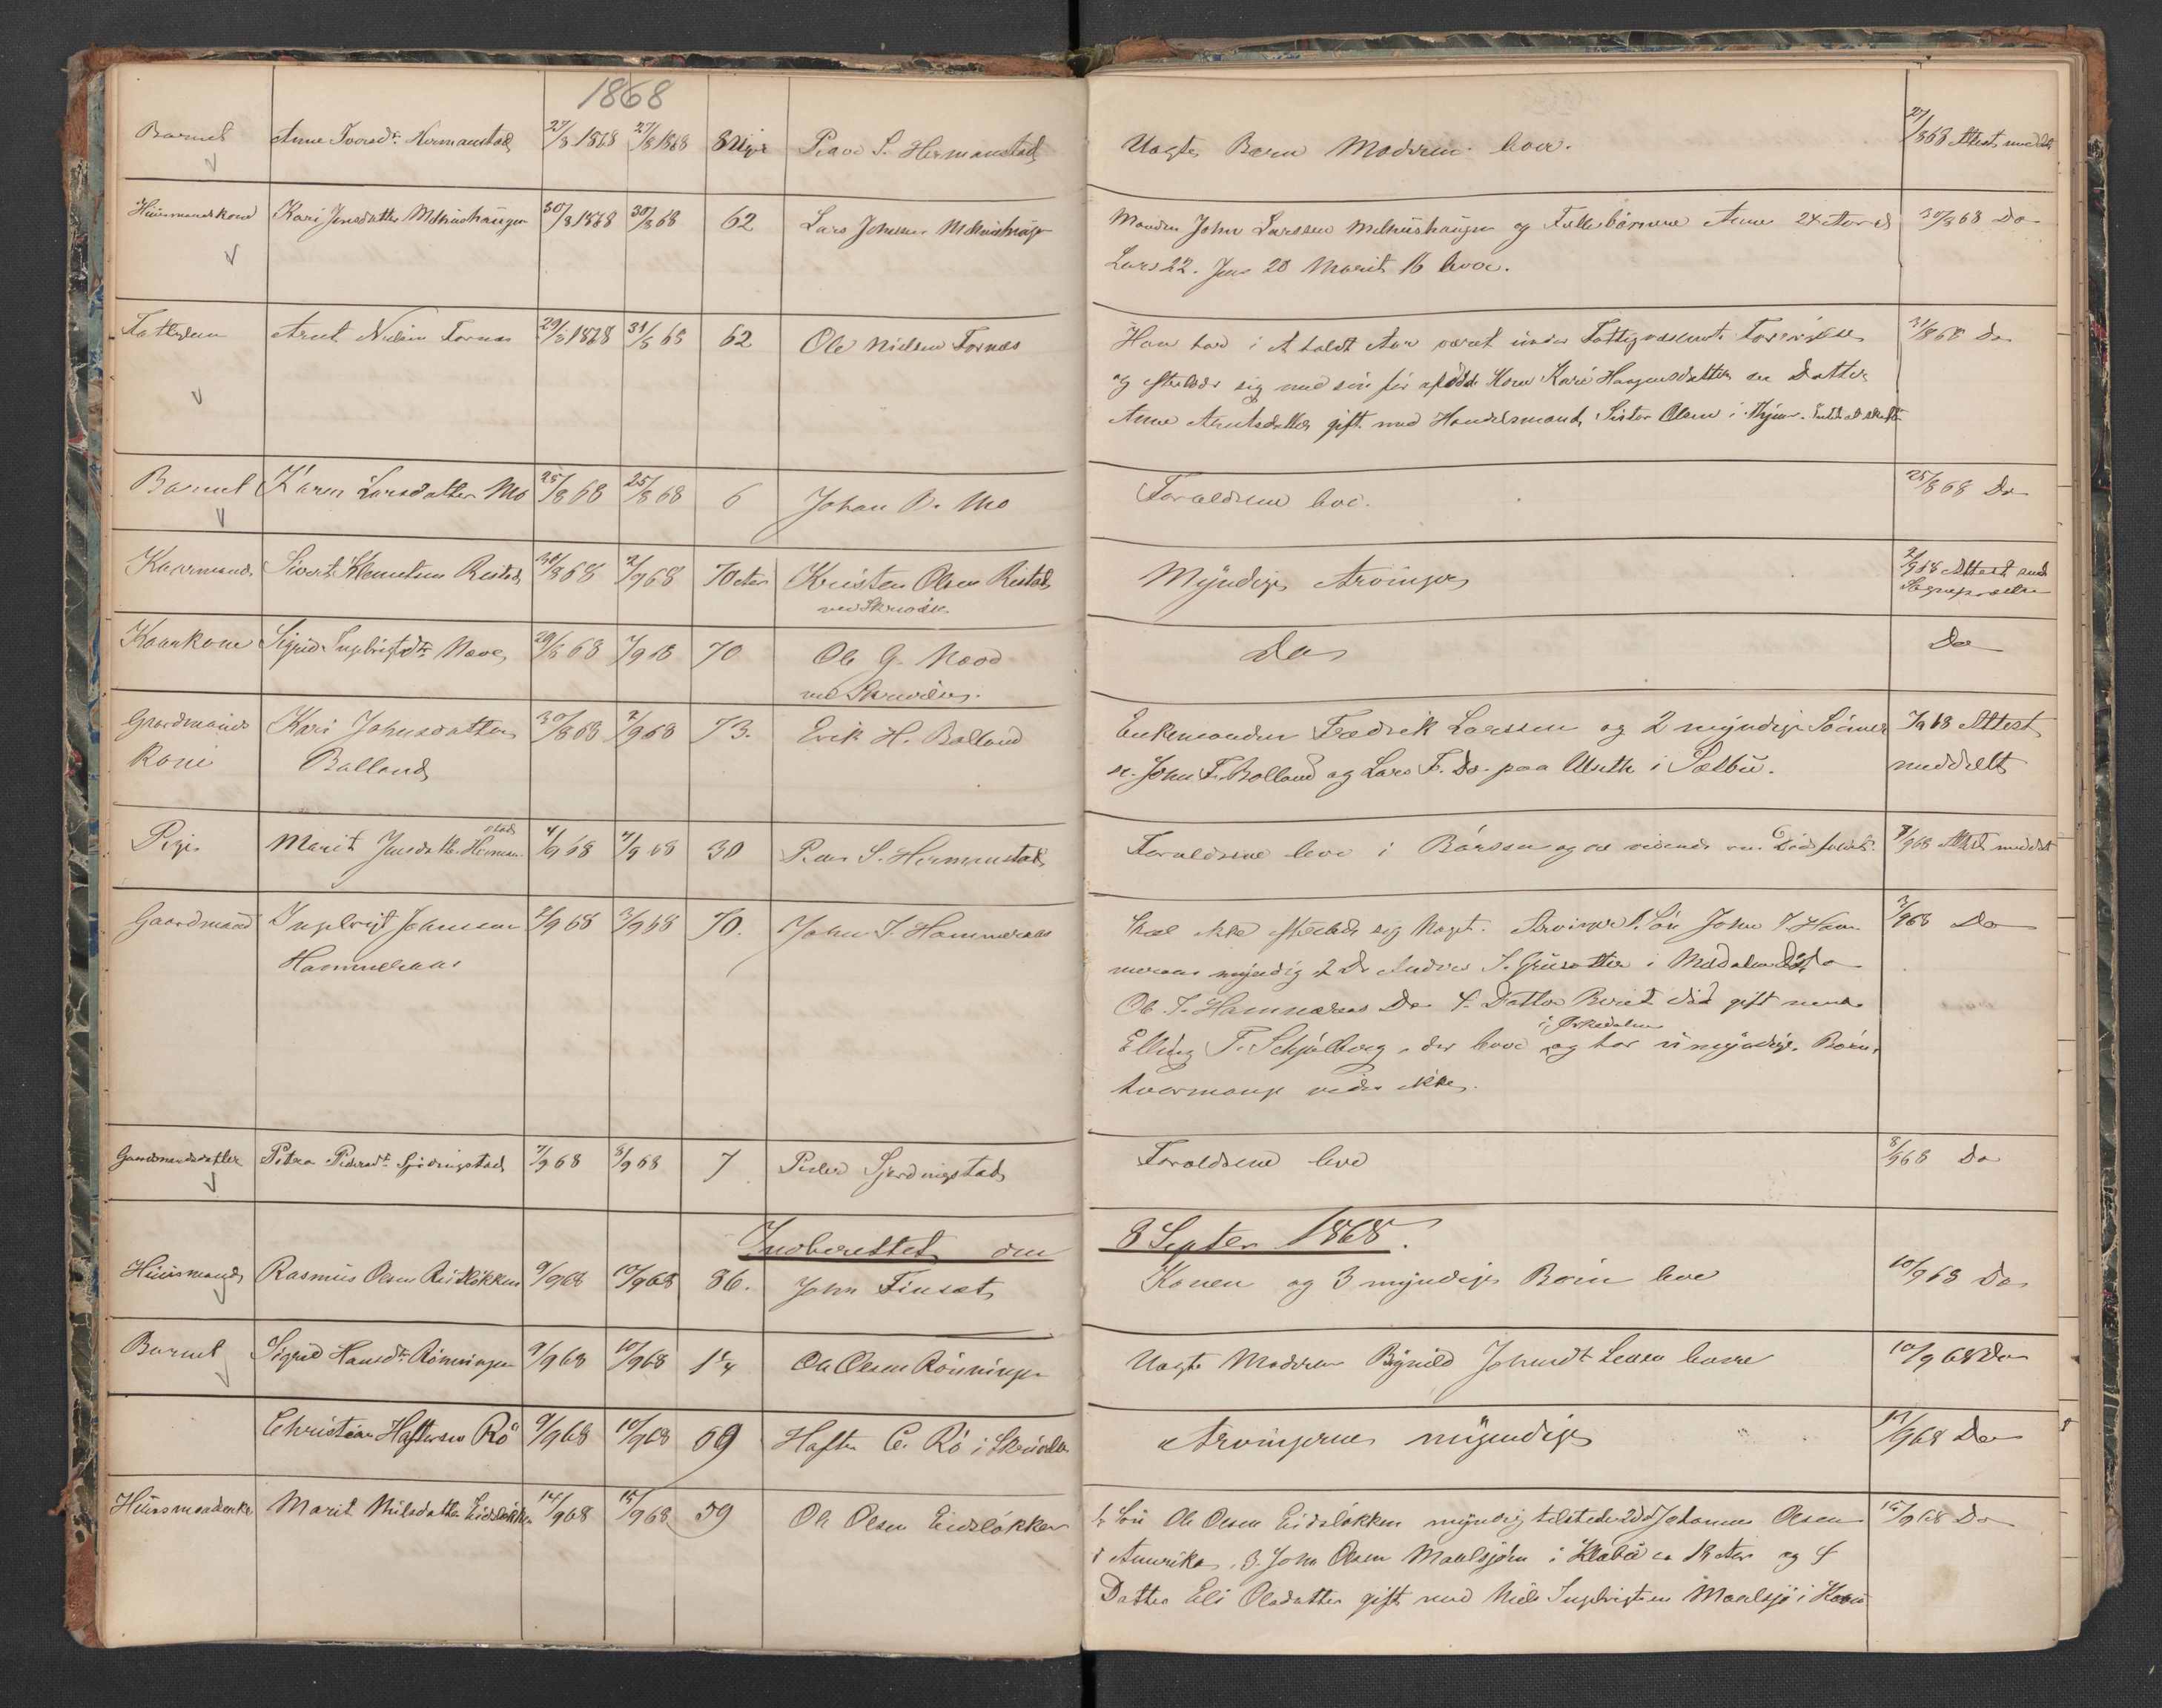 1868
Barnet Anne Iversdr. Hermanstad 27/8 1868 27/8 1868 8 Uger Peder S. Hermanstad Uægte Barn Moderen lever. 27/8 68 Attest medd.
Huusmandskone Kari Jensdatter Melhushaugen 30/8 1868 30/8 68 62 Lars Johnsen Melhushaugen Manden John Larssen Melhushaugen og Fællesbørnene Anne 24 Aar 30/8 68 Do
Lars 22. Jens 20 Marit 16 lever.
Fattiglem Arnt Nielsen Fornes 29/8 1868 31/8 68 62 Ole Nielsen Fornes Han har i et halvt Aar været under Fattigvæsenets Forsørgelse 31/8 68 Do
og efterlader sig med sin før afdøde Kone Kari Haagensdatter en Datter
Anne Arntsdatter gift med Handelsmand Sivert Olsen i Thjem.
Barnet Karen Larsdatter Mo 25/8 68 25/8 68 6 Johan B. Mo Forældrene leve. 25/8 68 Do
Kaarmand Sivert Klemetsen Reistad 30/8 68 2/9 68 70 Aar Kristen Olsen Reistad
ved Skrivelse Myndige Arvinger 2/9 68 Attest med
Sognepræsten
Kaarkone Sigrid Ingebrigtsdr. Nave 29/8 68 7/9 68 70 Ole G. Nave
ved Skrivelse. Do Do
Gaardmands Kari Johnsdatter 30/8 68 7/9 68 73. Erik H. Balland Enkemanden Fredrik Larssen og 2 myndige Sønner 7/9 68 Attest
kone Balland n. John F. Balland og Lars F. Do. paa Useth i Sælbu. meddelt
Pige Marit Jensdatter Hermanstad 4/9 68 4/9 68 30 Peder S. Hermanstad Forældrene leve i Børsen og er vidende om Dødsfaldet. 4/9 68 Attest meddelt
Gaardmand Ingebrigt Johnsen 2/9 68 3/9 68 70. John I. Hammeraas Skal ikke efterlade sig Noget. Arvinger 1. Søn John I. Ham- 3/9 68 Do
Hammeraas meraas myndig 2 Do Anders I. i Meldalen Do
Ole I. Hammeraas Do 4. Datter Berit død gift med
Elling T. Schjølberg, der lever i Orkedalen og har umyndige Børn,
hvormange vides ikke.
Gaardmandsdatter Petra Pedersdr. Sjødningstad 7/9 68 8/9 68 7 Peder Sjødningstad Forældrene leve 8/9 68 Do
Indberettet den 8 Septer 1868.
Huusmand Rasmus Olsen Reitløkken 9/9 68 10/9 68 86. John Finset Konen og 3 myndige Børn leve 10/9 68 Do
Barnet Sigrid Hansdr. Rønningen 9/9 68 10/9 68 1 1/4 Ole Olsen Rønningen Uægte Moderen Johnsdt Leeren levere 10/9 68 Do
Christian Haftorsen Rø 9/9 68 10/9 68 69 Haftor C. Rø i Skrivelse Arvingerne myndige 11/9 68 Do
Huusmandsenke Marit Nilsdatter Eidsløkken 14/9 68 15/9 68 59 Ole Olsen Eidsløkken 1. Søn Ole Olsen Eidsløkken myndig tilstede 2 Do Johannes Olsen 15/9 68 Do
i Amerika, 3. John Olsen Maalsjøen i Klæbu ca 18 Aar og 4
Datter Eli Olsdatter gift med Nils Ingebrigtsen Maalsjø i